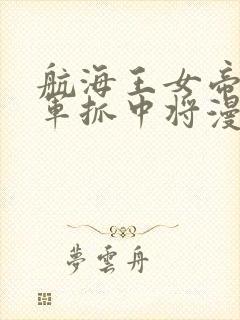 航海王女帝
军抓中将漫
夢雲舟